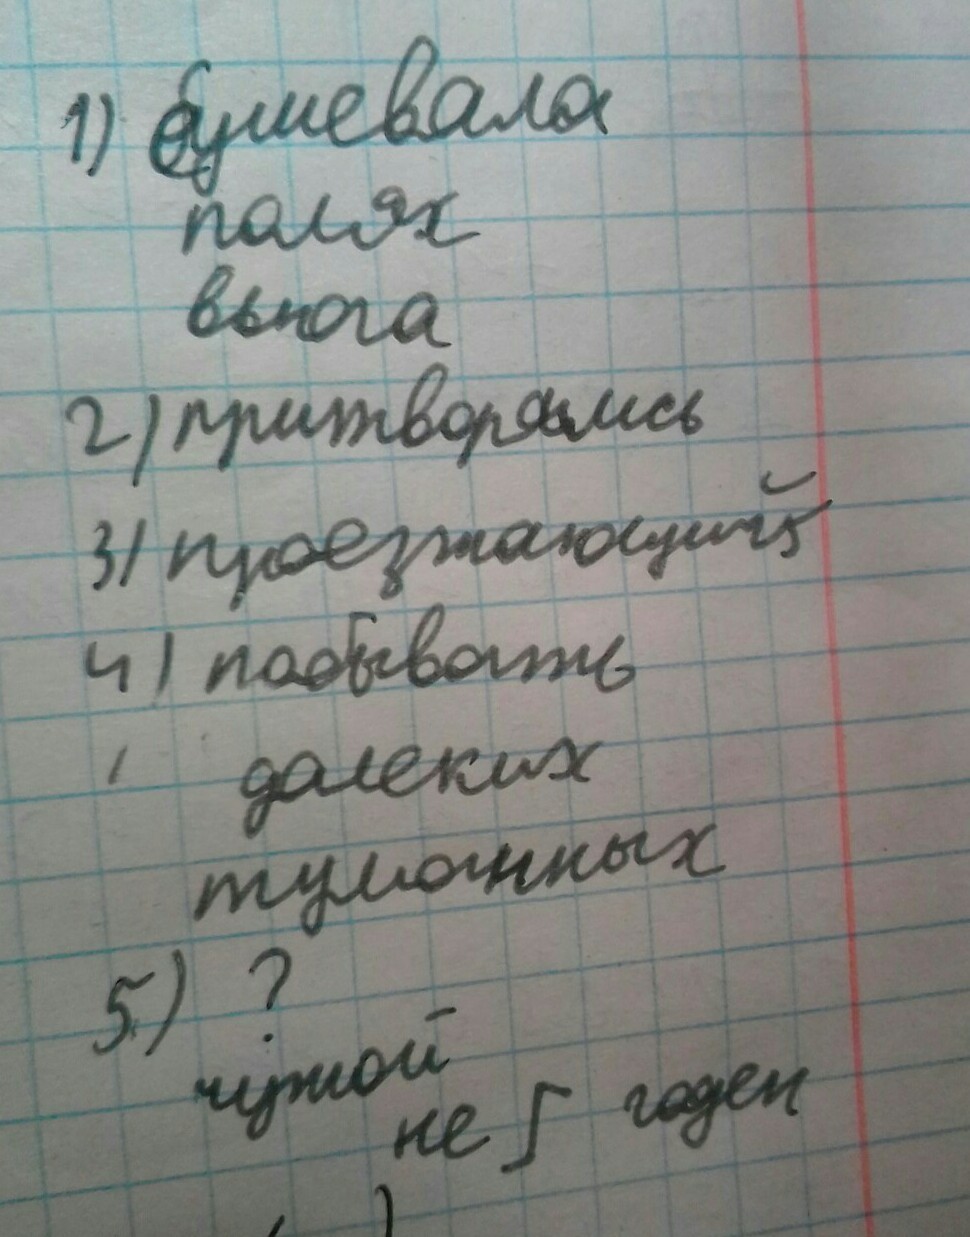 1) бушевала
полях
вьюга
2) притворялись
3) проезжающий
4) побывать
далеких
туманных
5) ?
чужой
не годен